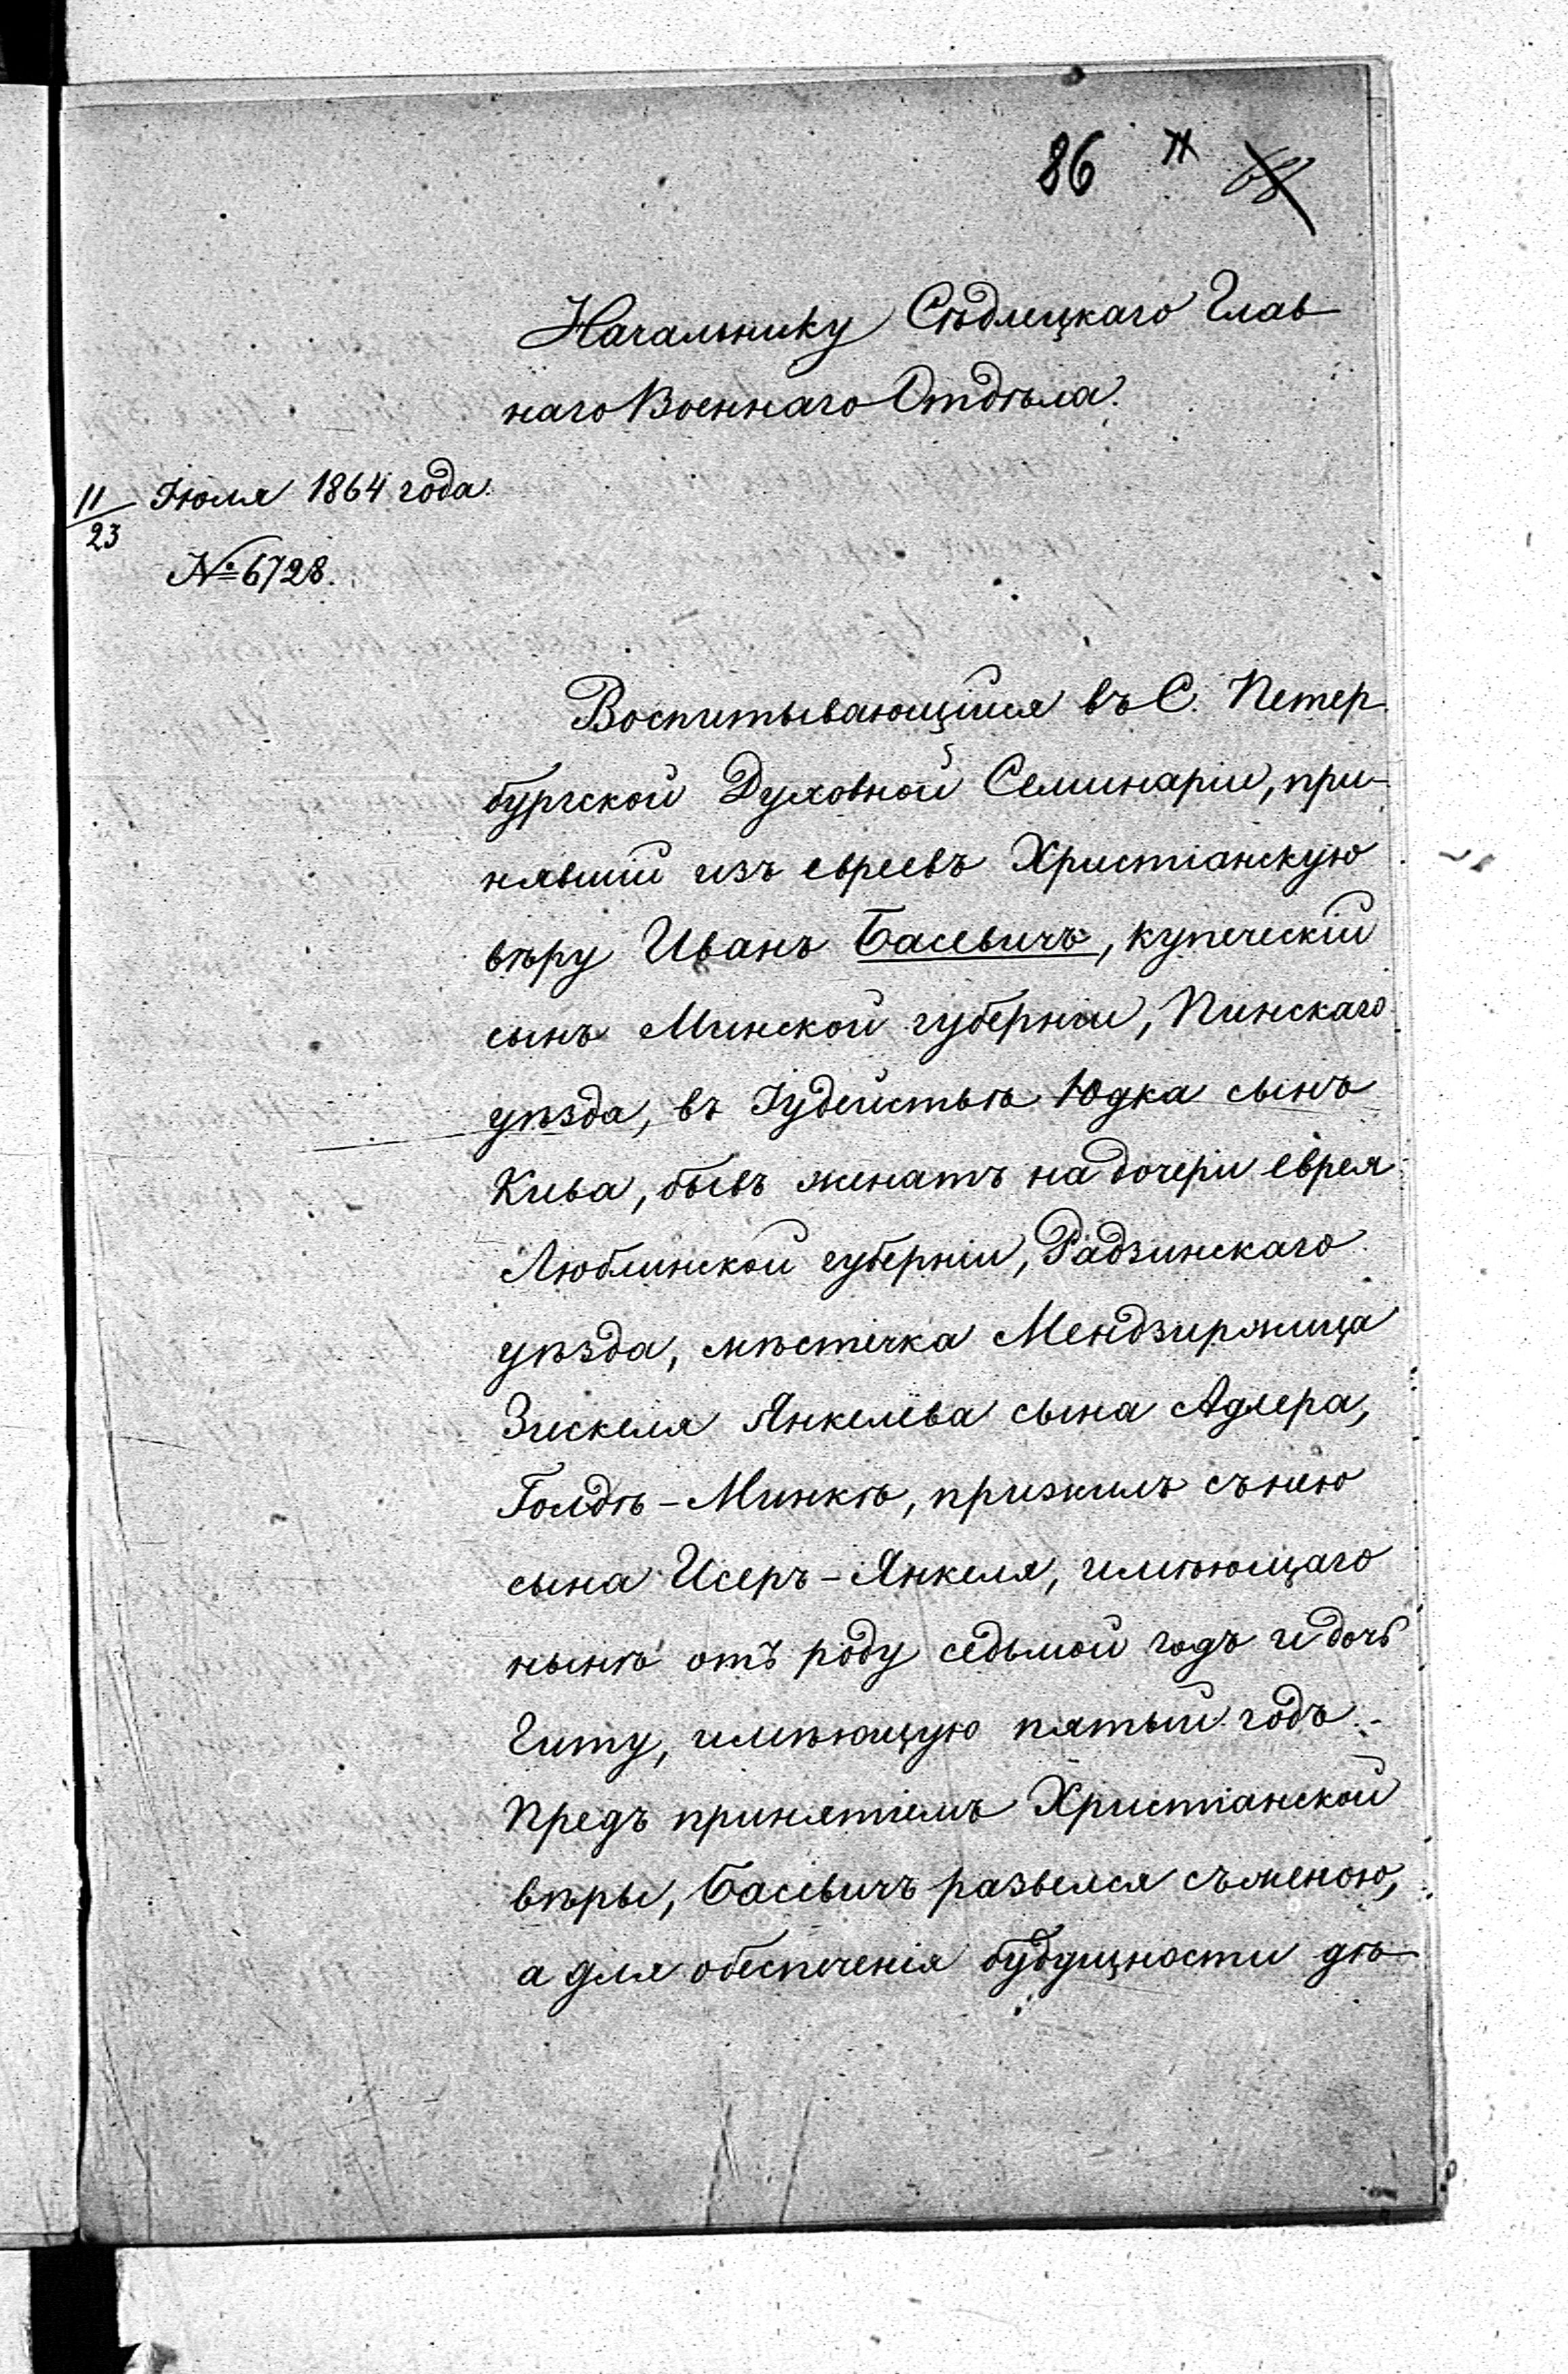 86
Начальнику Сѣдлецкаго Глав
наго Военнаго Отдѣла.
11/23 Іюля 1864 года.
№ 6728.
Воспитывающійся въ С. Петер
бургской Духовной Семинаріи, при-
нявшій изъ евреевъ Христіанскую
вѣру Иванъ Басевичъ, купеческій
сынъ Минской губерніи, Пинскаго
уѣзда, въ Іудействѣ Юдка сынъ
Кива, бывъ женатъ на дочери еврея
Люблинской губерніи, Радзинскаго
уѣзда, мѣстечка Мендзиржица
Зискеля Янкелева сына Адлера,
Голдѣ-Минкѣ, прижилъ съ нею
сына Исеръ-Янкеля, имѣющаго
нынѣ отъ роду седьмой годъ и дочь
Гиту, имѣющую пятый годъ.-
Предъ принятіемъ Христіанской
вѣры, Басевичъ развелся съ женою,
а для обеспеченія будущности дѣ-